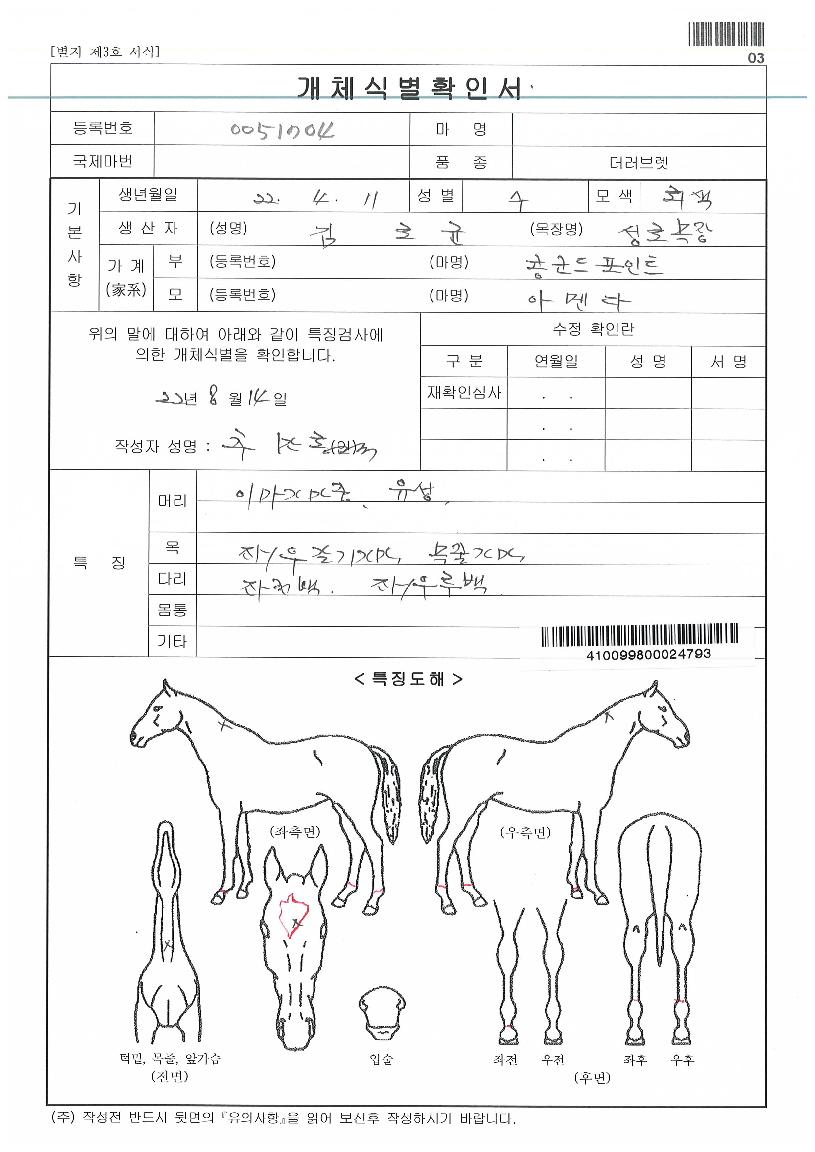 [별지 제3호 서식]
03
개체식별확인서
등록번호 0051004 마 명
국제마번 품 종 더러브렛
기본사항
생년월일 22. 4. 11 성 별 수 모 색 회색
생 산 자 (성명) 김 호 균 (목장명) 성호목장
가 계 (家系) 부 (등록번호) (마명) 콩코드포인트
모 (등록번호) (마명) 아멘다
위의 말에 대하여 아래와 같이 특징검사에
의한 개체식별을 확인합니다.
22년 8월 14일
작성자 성명 :
수정 확인란
구 분 연월일 성 명 서 명
재확인심사 . .
. .
. .
특 징
머리 유성
목
다리
몸통
기타
410099800024793
< 특징도해 >
(좌측면) (우측면)
턱밑, 목줄, 앞가슴 입술 좌전 우전 좌후 우후
(전면) (후면)
(주) 작성전 반드시 뒷면의 『유의사항』을 읽어 보신후 작성하시기 바랍니다.